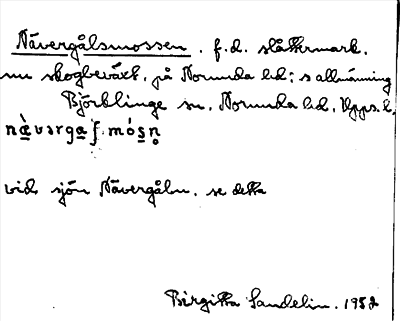 Nävergålsmossen . f.d. slåttermark.
nu skogbeväxt, på Norunda hd:s allmänning
Björklinge sn, Norunda hd, Upps. l.
vid sjön Nävergåln. se detta
Birgitta Sandelin. 1952